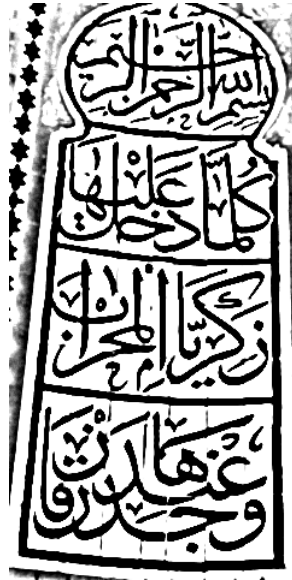 بسم الله الرحمن الرحيم
كلما دخل عليها
زكريا المحراب
وجد عندها رزقا